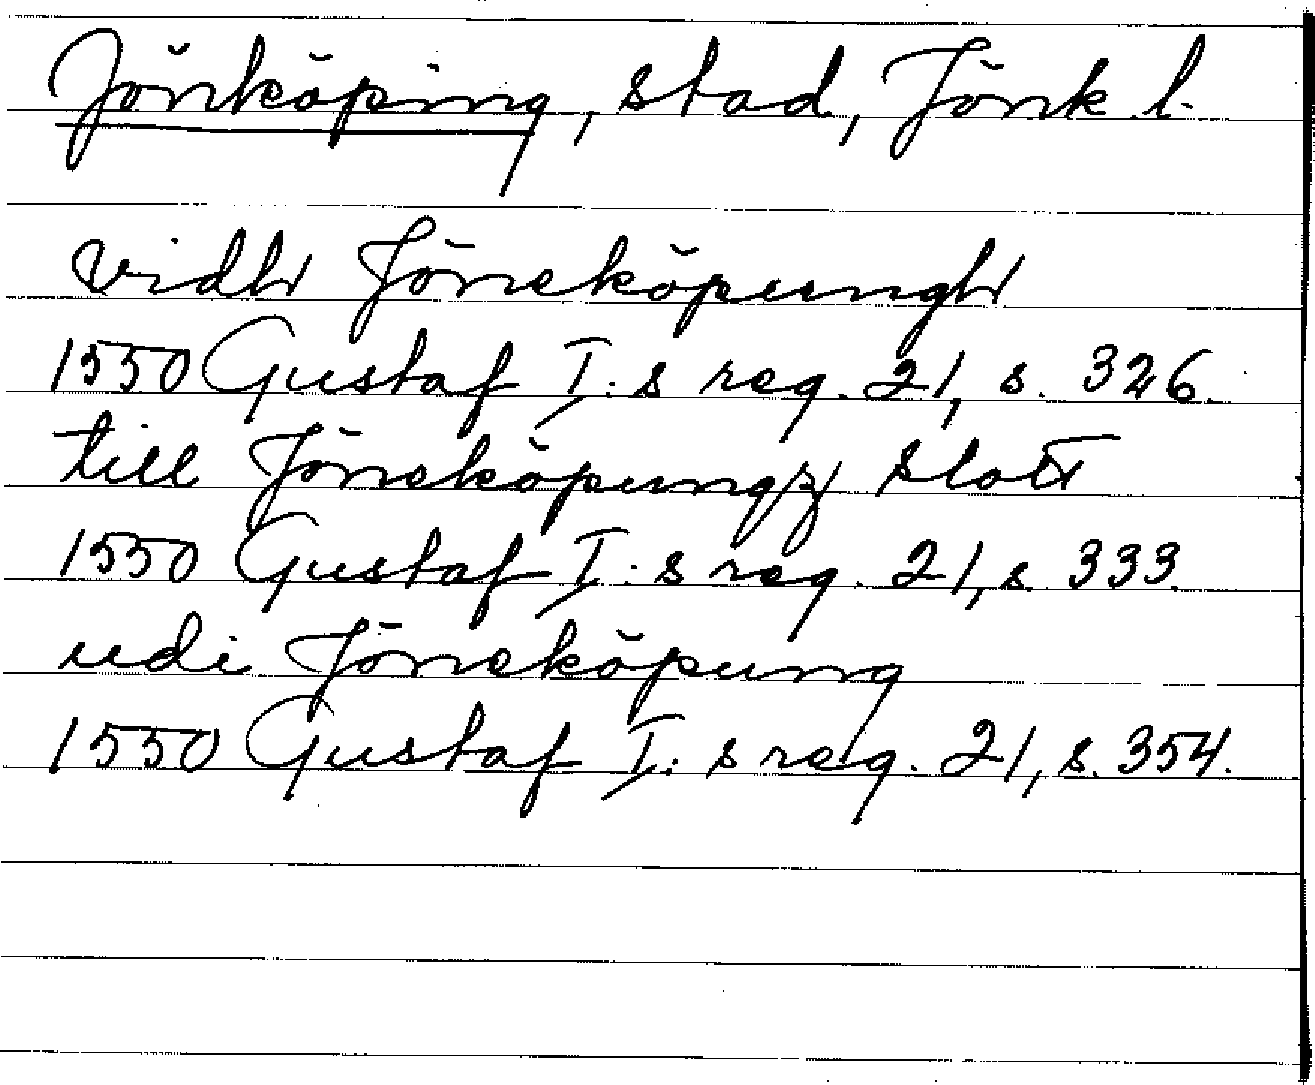 Jönköping, stad, Jönk l.
vidh Jöneköpungh
1550 Gustaf I:s reg. 21, s. 326.
till Jöneköpungz slott
1550 Gustaf I:s reg. 21, s. 333.
udi Jöneköpung
1550 Gustaf I:s reg. 21, s. 354.